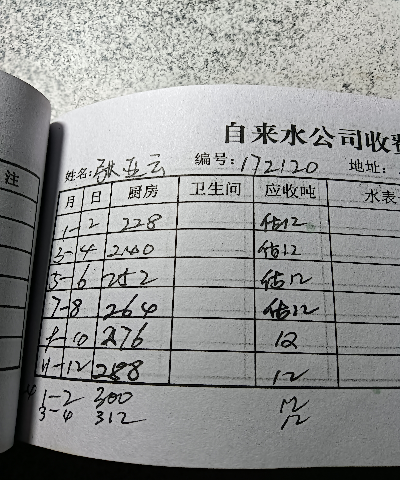 自来水公司收费
姓名: 张亚云 编号: 172120 地址:
注 月 日 厨房 卫生间 应收吨 水表
1-2 228 估12
3-4 240 估12
5-6 252 估12
7-8 264 估12
9-10 276 12
11-12 288 12
1-2 300 12
3-4 312 12